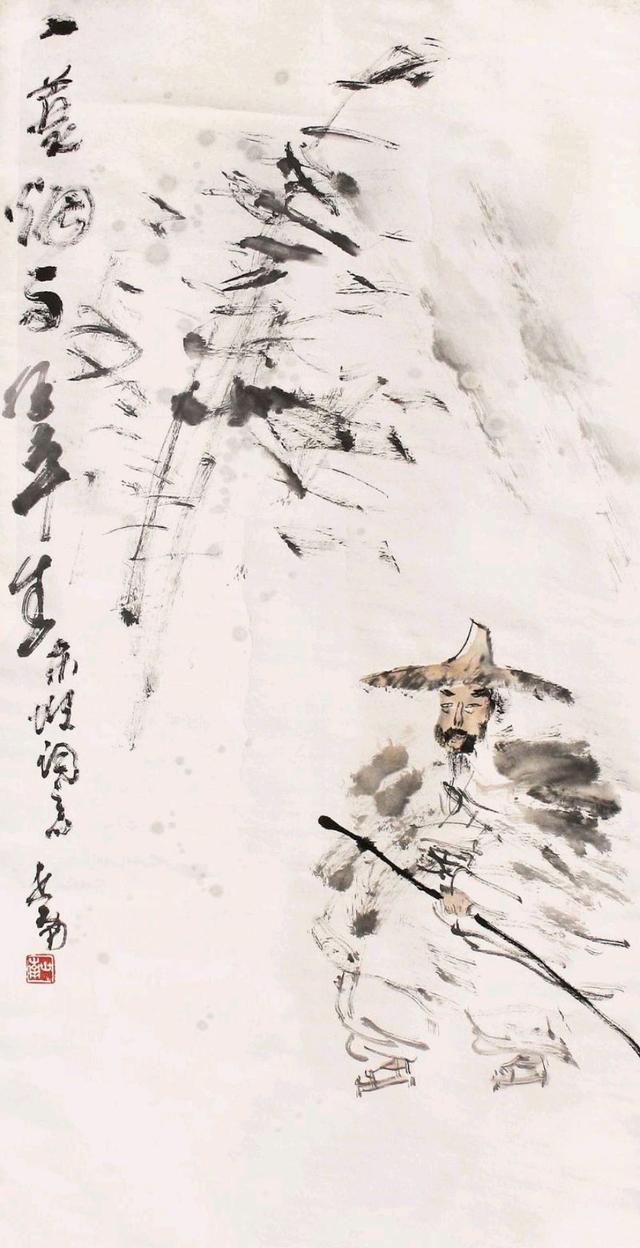 一蓑烟雨任平生 东坡词意
山南